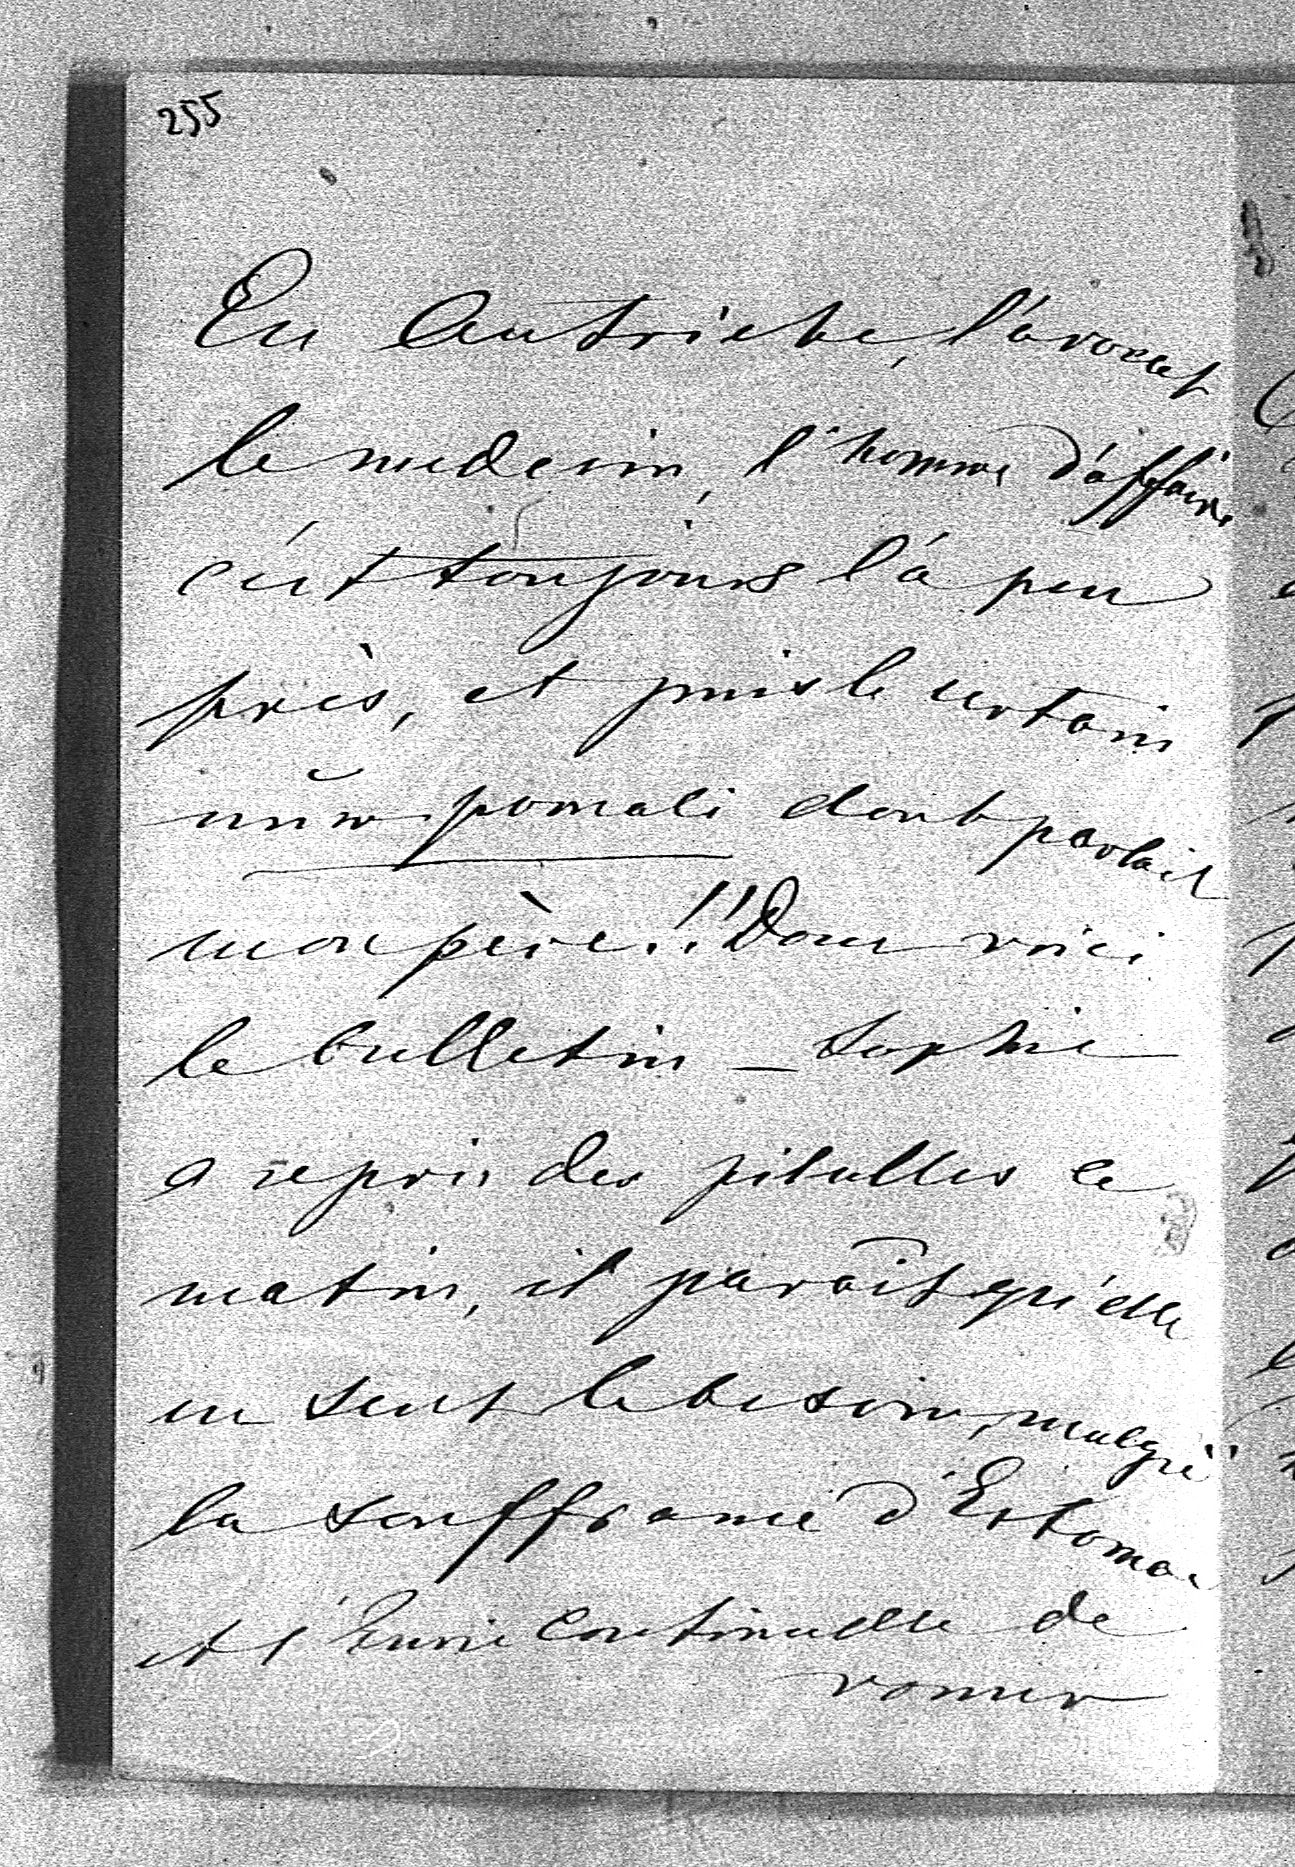 255
En Autriche, l'avocat
le medecin, l'homme d'affaire
c'est toujours l'à peu
près, et puis le certain
pomali dont parlait
mon père!! Donc voici
le bulletin — Sophie
a repris des pilulles ce
matin, il paraît qu'elle
en sent le besoin, malgré
la souffrance d'Estomac
et l'Envie Continuelle de
vomir